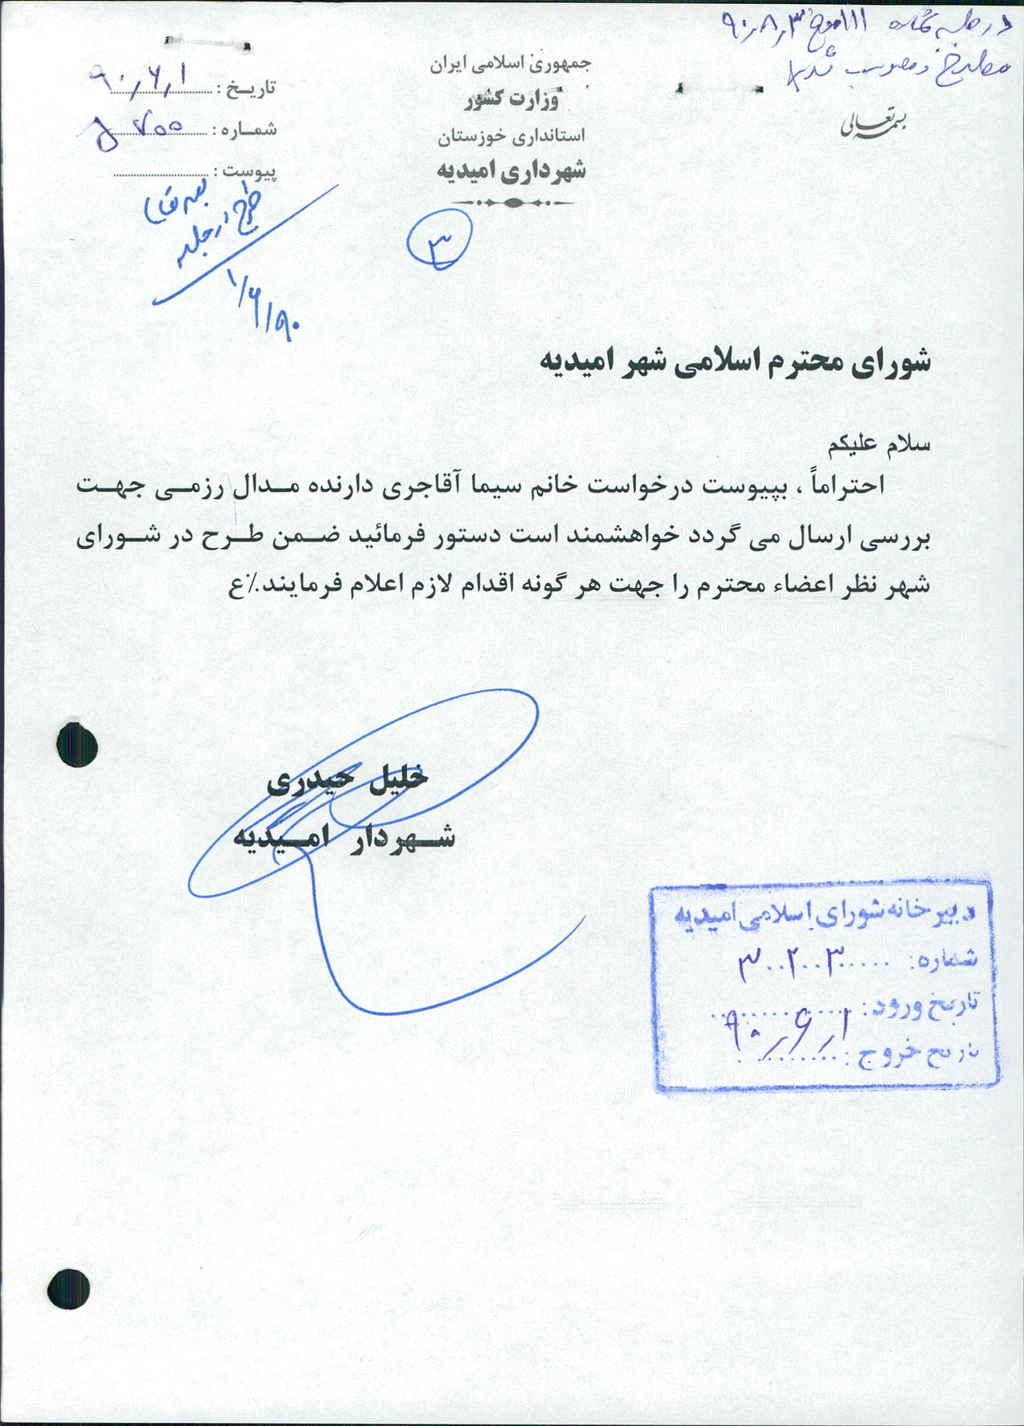 در جلسه شماره ۱۱۱ مورخ ۹۰،۸،۳
مطرح و مصوب شد
بسمه تعالی
جمهوری اسلامی ایران
وزارت کشور
استانداری خوزستان
شهرداری امیدیه
تاریخ : ۹۰،۶،۱
شماره : ۷۰۰
پیوست :
طرح در جلسه
۹۰/۶/۱
۳
شورای محترم اسلامی شهر امیدیه
سلام علیکم
احتراماً ، بپیوست درخواست خانم سیما آقاجری دارنده مدال رزمی جهت
بررسی ارسال می گردد خواهشمند است دستور فرمائید ضمن طرح در شورای
شهر نظر اعضاء محترم را جهت هر گونه اقدام لازم اعلام فرمایند.٪ع
خلیل حیدری
شهردار امیدیه
دبیرخانه شورای اسلامی امیدیه
شماره: ۳۰۰۲۰۰۳
تاریخ ورود: ۹۰،۶،۱
تاریخ خروج: